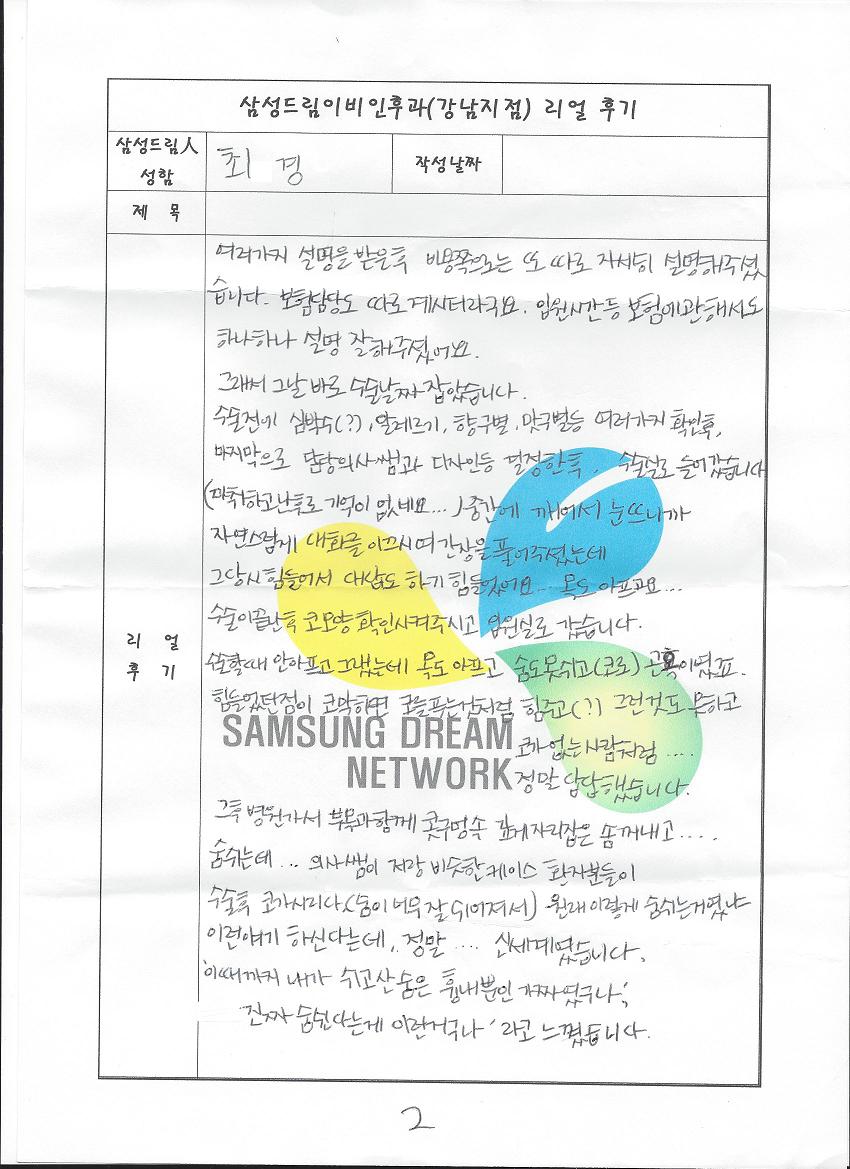 삼성드림이비인후과(강남지점) 리얼 후기
삼성드림人
성함
최 경
작성날짜
제 목
리 얼
후 기
여러가지 설명을 받은후 비용쪽으로는 또 따로 자세히 설명해주셨
습니다. 보험담당도 따로 계시더라구요. 입원시간등 보험에관해서도
하나하나 설명 잘해주셨어요.
그래서 그날 바로 수술날짜 잡았습니다.
수술전에 심박수(?), 알레르기, 향구별, 맛구별등 여러가지 확인후,
마지막으로 담당의사쌤과 디자인등 결정한후, 수술실로 들어갔습니다
(마취하고난후로 기억이 없네요...) 중간에 깨어서 눈뜨니까
자연스럽게 대화를 이끄시며 긴장을 풀어주셨는데
그당시 힘들어서 대답도 하기 힘들었어요... 목도 아프고요...
수술이끝난후 코모양 확인시켜주시고 입원실로 갔습니다.
수술할때 안아프고 그랬는데 목도 아프고 숨도못쉬고(코로) 곤욕이였죠.
힘들었던점이 코막히면 코를푸는것처럼 힘주고(?) 그런것도 못하고
코가 없는 사람처럼 ....
정말 답답했습니다.
SAMSUNG DREAM
NETWORK
그후 병원가서 부목과함께 콧구멍속 깊게자리잡은 솜꺼내고....
숨쉬는데... 의사쌤이 저랑 비슷한케이스 환자분들이
수술후 코가시리다,(숨이 너무 잘 쉬어져서) 원래 이렇게 숨쉬는거였냐
이런얘기 하신다는데, 정말 .... 신세계였습니다.
'이때까지 내가 쉬고산 숨은 흉내뿐인 가짜였구나',
진짜 숨쉰다는게 이런거구나' 라고 느꼈습니다.
2